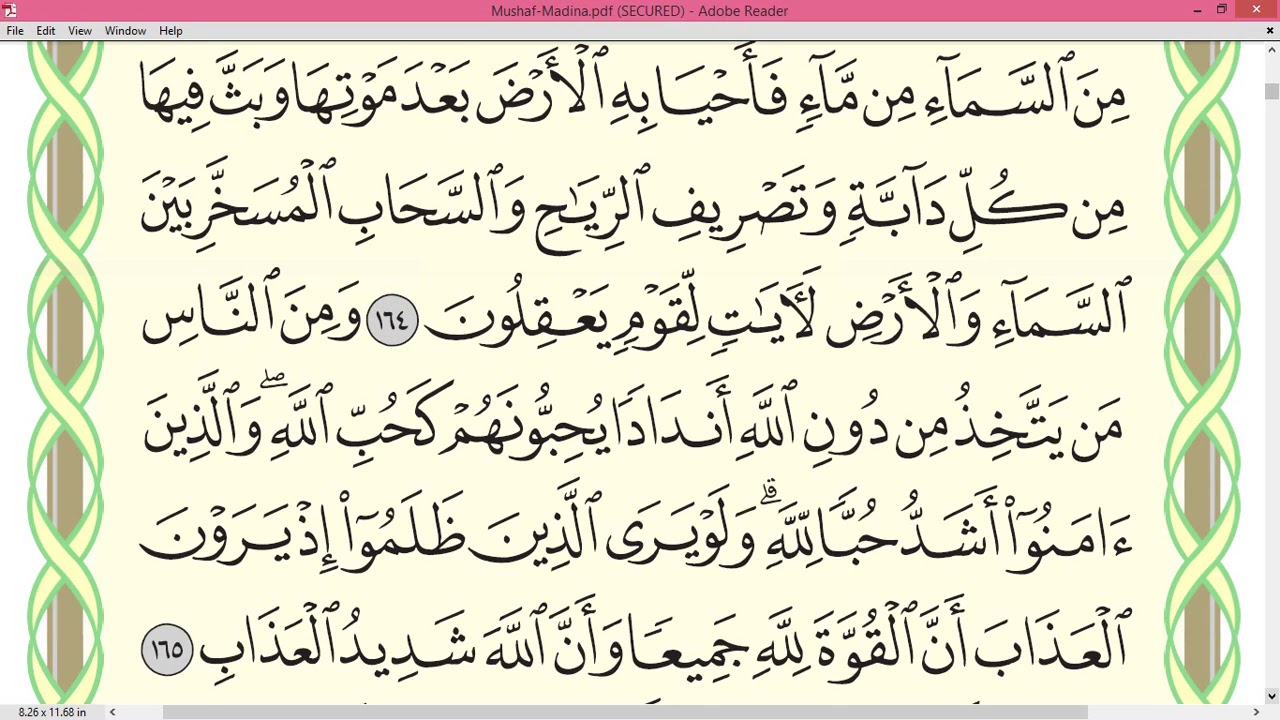 Mushaf-Madina.pdf (SECURED) - Adobe Reader
File Edit View Window Help
مِنَ ٱلسَّمَآءِ مِن مَّآءٍ فَأَحْيَا بِهِ ٱلْأَرْضَ بَعْدَ مَوْتِهَا وَبَثَّ فِيهَا
مِن كُلِّ دَآبَّةٍ وَتَصْرِيفِ ٱلرِّيَٰحِ وَٱلسَّحَابِ ٱلْمُسَخَّرِ بَيْنَ
ٱلسَّمَآءِ وَٱلْأَرْضِ لَأٓيَٰتٍ لِّقَوْمٍ يَعْقِلُونَ ١٦٤ وَمِنَ ٱلنَّاسِ
مَن يَتَّخِذُ مِن دُونِ ٱللَّهِ أَندَادًا يُحِبُّونَهُمْ كَحُبِّ ٱللَّهِ ۖ وَٱلَّذِينَ
ءَامَنُوٓا۟ أَشَدُّ حُبًّا لِّلَّهِ ۗ وَلَوْ يَرَى ٱلَّذِينَ ظَلَمُوٓا۟ إِذْ يَرَوْنَ
ٱلْعَذَابَ أَنَّ ٱلْقُوَّةَ لِلَّهِ جَمِيعًا وَأَنَّ ٱللَّهَ شَدِيدُ ٱلْعَذَابِ ١٦٥
8.26 x 11.68 in